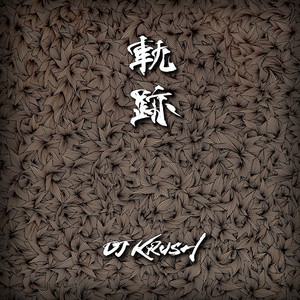 軌
跡
DJ KRUSH